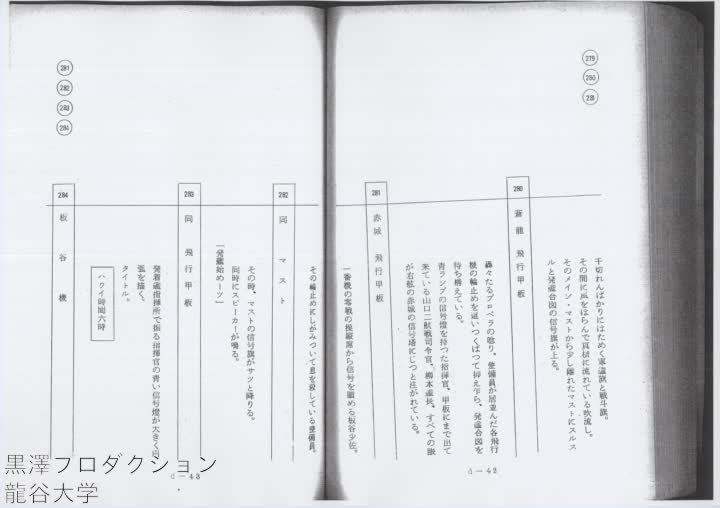 279
280
281
千切れんばかりにはためく軍艦旗と戦斗旗。
その間に風をはらんで真横に流れている吹流し。
そのメイン・マストから少し離れたマストにスルス
ルと発艦合図の信号旗が上る。
280 蒼龍 飛行甲板
轟々たるプロペラの唸り。整備員が居並んだ各飛行
機の輪止めを這いつくばって抑え乍ら、発艦合図を
待ち構えている。
青ランプの信号燈を持つた指揮官、甲板にまで出て
来ている山口二航戦司令官、柳本艦長、すべての眼
が右舷の赤城の信号墻にじつと注がれている。
281 赤城 飛行甲板
一番機の零戦の操縦席から信号を眺める板谷少佐。
d-42
281
282
283
284
その輪止めにしがみついて息を殺している整備員。
282 同 マスト
その時、マストの信号旗がサツと降りる。
同時にスピーカーが鳴る。
「発艦始めーツ」
283 同 飛行甲板
発着艦指揮所で振る指揮官の青い信号燈が大きく円
弧を描く。
タイトル。
ハワイ時間六時
284 板谷機
d-43
黒澤プロダクション
龍谷大学